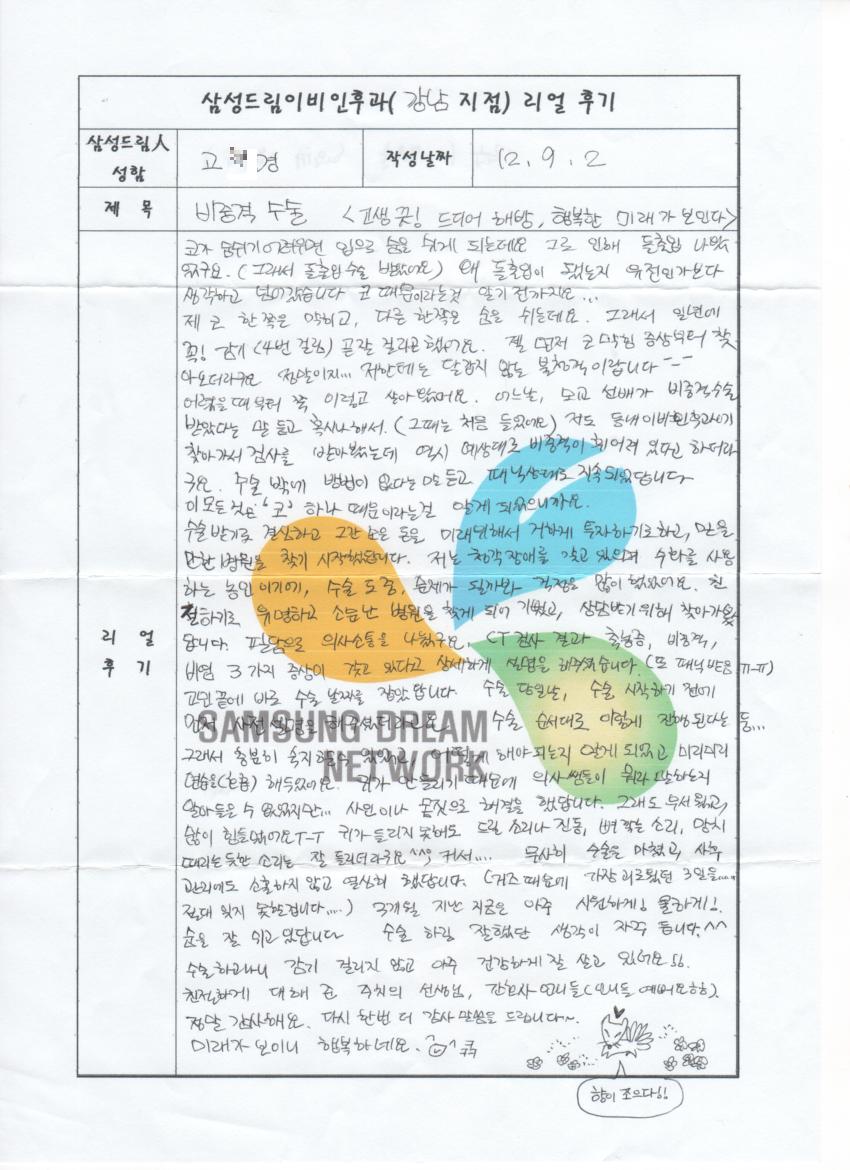 삼성드림이비인후과( 강남 지점) 리얼 후기
삼성드림人 성함
고 경
작성날짜
12. 9. 2
제 목
비중격 수술 <고생 끝! 드디어 해방, 행복한 미래가 보인다>
리 얼 후 기
코가 숨쉬기 어려우면 입으로 숨을 쉬게 되는데요 그로 인해 돌출입 나왔
었구요. (그래서 돌출입 수술 받았어요) 왜 돌출입이 됐는지 유전인가보다
생각하고 넘어갔습니다 코 때문이라는것 알기 전가지요...
제 코 한쪽은 막히고, 다른 한쪽은 숨을 쉬는데요. 그래서 일년에
꼭! 감기 (4번 걸림) 곧잘 걸리곤 했어요. 젤 먼저 코막힘 증상부터 찾
아오더라구요 정말이지... 저한테는 달갑지 않는 불청객이랍니다 -_-
어렸을때부터 쭉 이렇고 살아왔어요. 어느날, 모교 선배가 비중격수술
받았다는 말 듣고 혹시나해서. (그때는 처음 들었어요) 저도 동네 이비인후과에
찾아가서 검사를 받아봤는데 역시 예상대로 비중격이 휘어져 있다고 하더라
구요. 수술 밖에 방법이 없다는 말 듣고 패닉상태로 지속되었답니다
이 모든 것은 '코' 하나 때문이라는걸 알게 되었으니까요.
수술받기로 결심하고 그간 모은 돈을 미래위해서 거하게 투자하기로하고, 믿을
만한 병원을 찾기 시작했답니다. 저는 청각장애를 갖고 있으며 수화를 사용
하는 농인이기에, 수술 도중, 문제가 될까봐 걱정을 많이 했었어요. 친
절하기로 유명하고 소문난 병원을 찾게 되어 기뻤고, 상담받기 위해 찾아가봤
답니다. 필담으로 의사소통을 나눴구요, CT 검사 결과 축농증, 비중격,
비염 3가지 증상이 갖고 있다고 상세하게 설명을 해주셨습니다. (또 패닉받음 ㅠㅠ)
고민 끝에 바로 수술 날짜를 잡았답니다. 수술 당일날, 수술 시작하기 전에
먼저 사전설명을 해주셨더라구요. 수술 순서대로 이렇게 진행된다는 등...
그래서 충분히 숙지할수 있었고, 어떻게 해야 되는지 알게 되었고 미리미리
해두었어요. 귀가 안들리기 때문에 의사쌤들이 뭐라 말하는지
알아들을 수 없었지만... 사인이나 몸짓으로 해결을 했답니다. 그래도 무서웠고,
많이 힘들었어요 T-T 귀가 들리지 못해도 드릴 소리나 진동, 뼈 깎는 소리, 망치
때리는 듯한 소리는 잘 들리더라구요 ^^; 커서.... 무사히 수술을 마쳤고, 사후
관리에도 소홀하지 않고 열심히 했답니다. (거즈 때문에 가장 괴로웠던 3일을....
절대 잊지 못할겁니다....) 3개월 지난 지금은 아주 시원하게! 쿨하게!
숨을 잘 쉬고 있답니다 수술 하길 잘했단 생각이 자꾸 듭니다.^^
수술하고나니 감기 걸리지 않고 아주 건강하게 잘 살고 있네요!!
친절하게 대해 준 주치의 선생님, 간호사 언니들(언니들 예뻐요ㅎㅎ).
정말 감사해요. 다시 한번 더 감사 말씀을 드립니다~
미래가 보이니 행복하네요. ^^ 쿡쿡
향이 조으다!!
SAMSUNG DREAM
NETWORK